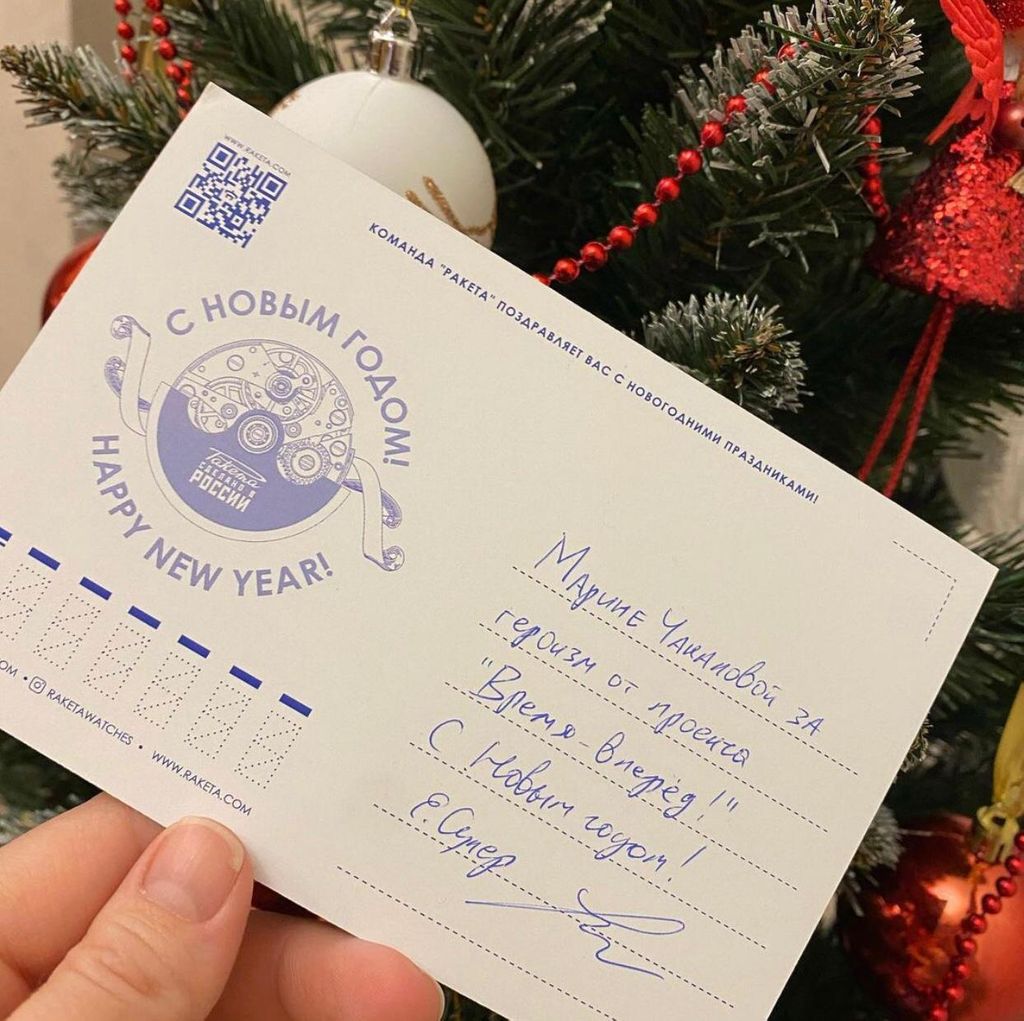 WWW.RAKETA.COM
КОМАНДА "РАКЕТА" ПОЗДРАВЛЯЕТ ВАС С НОВОГОДНИМИ ПРАЗДНИКАМИ!
С НОВЫМ ГОДОМ!
Ракета
СДЕЛАНО В
РОССИИ
HAPPY NEW YEAR!
Марине Чакаловой за
героизм от проекта
"Время-вперёд!"
С Новым годом!
Е.Супер
RAKETAWATCHES • WWW.RAKETA.COM